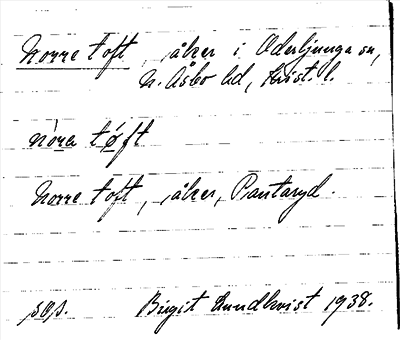 Norre toft, åker i Oderljunga sn,
N. Åsbo hd, Krist. l.
nòra tøft
Norre toft, åker, Pantaryd.
sos. Birgit Lundkvist 1938.